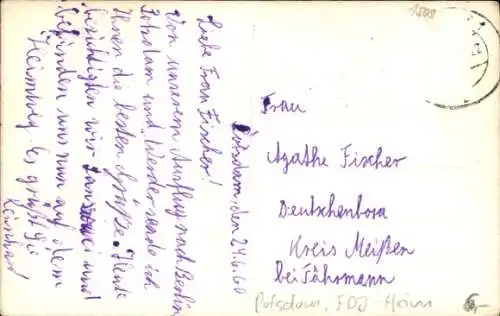 Potsdam, den 24.6.60
Liebe Frau Fischer!
Von unserem Ausflug nach Berlin
Potsdam und Werder sende ich
Ihnen die besten Grüße. Heute
besichtigten wir Sanssouci und
befinden uns nun auf dem
Heimweg. Es grüßt Sie
Reinhard
Frau
Agathe Fischer
Deutschenbora
Kreis Meißen
bei Fährmann
Potsdam, FDJ-Heim